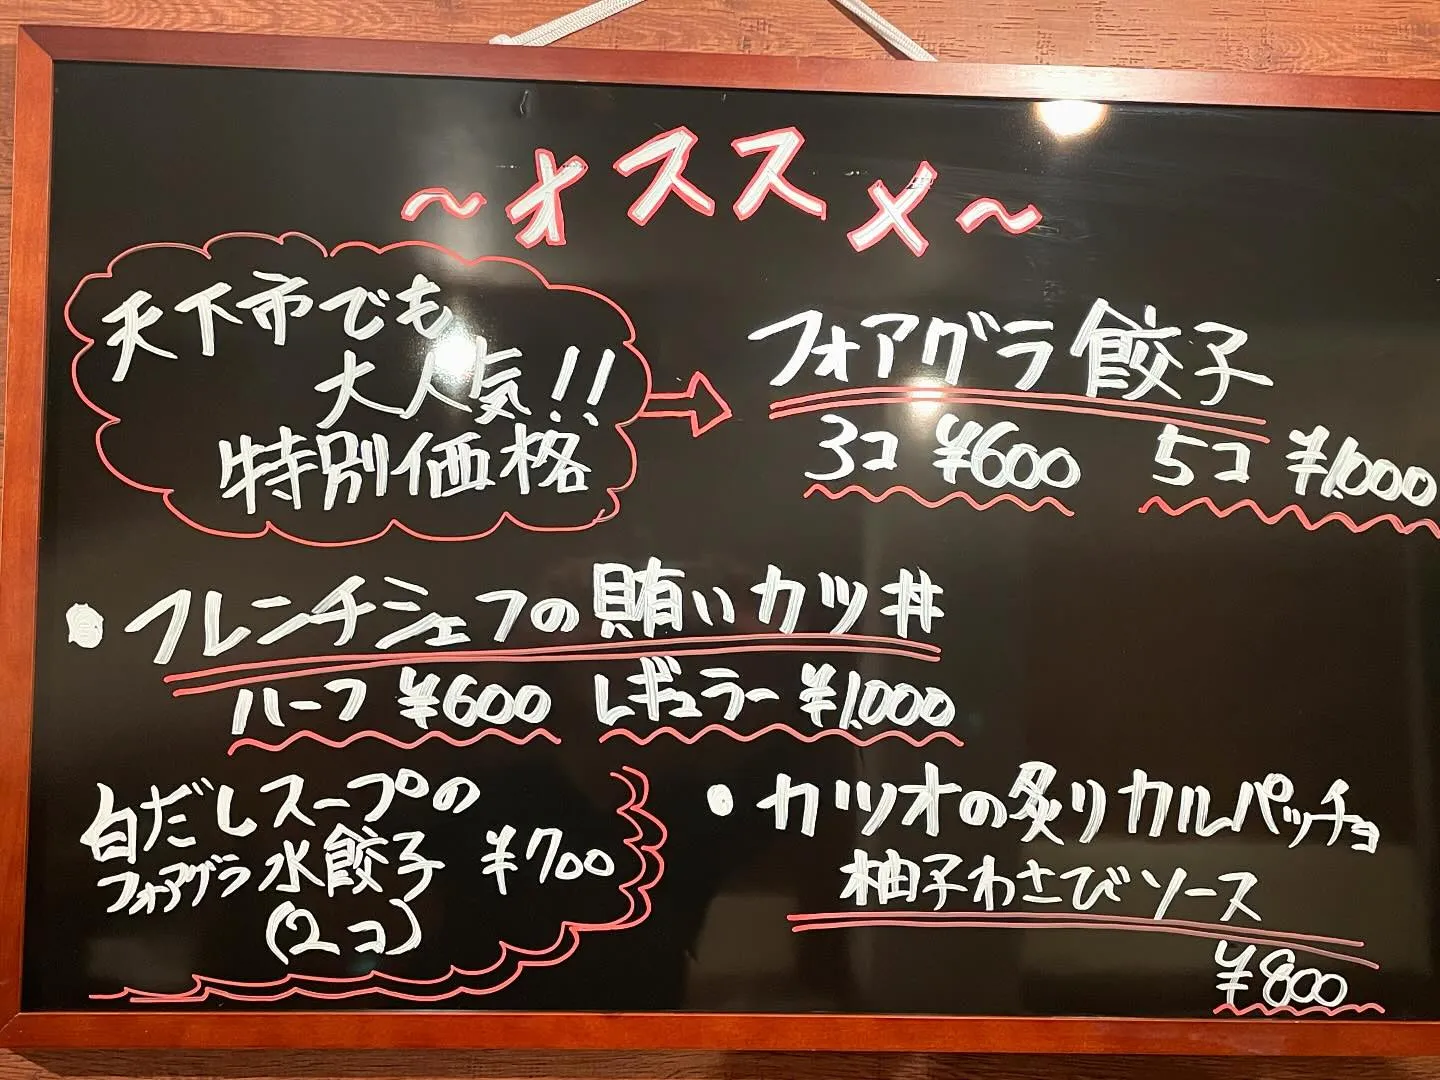 ～オススメ～
天下市でも
大人気!!
特別価格
フォアグラ餃子
3コ ¥600 5コ ¥1,000
・フレンチシェフの賄いカツ丼
ハーフ ¥600 レギュラー ¥1,000
白だしスープの
フォアグラ水餃子 ¥700
(2コ)
・カツオの炙りカルパッチョ
柚子わさびソース
¥800